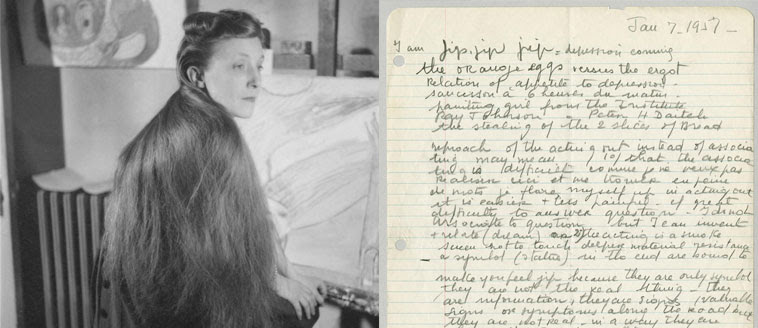 Jan 7 - 1957 -
I am jip. jip jip = depression coming
the orange eggs versus the ergot
Relation of appetite to depression -
à 6 heures du matin -
painting girl from the Institute
Ray Johnson - Peter H
the stealing of the 2 slices of Bread
reproach of the acting out instead of associa
ting may mean 10 that the associa
tion is difficult comme je ne veux pas
réaliser ceci et me trouve en peine
de mots je myself up in acting out
it is easier + less painful - if great
difficulty to answer question - I do not
associate to question but I can invent
+ relate (dream) the acting is a smoke
screen not to touch deeper material resistance
a symbol (status) in the end are bound to
make you feel jip because they are only symbol
they are not the real thing - they
are informations, they are signs (valuable
signs or symptoms along the road but
they are not real - in a way they are